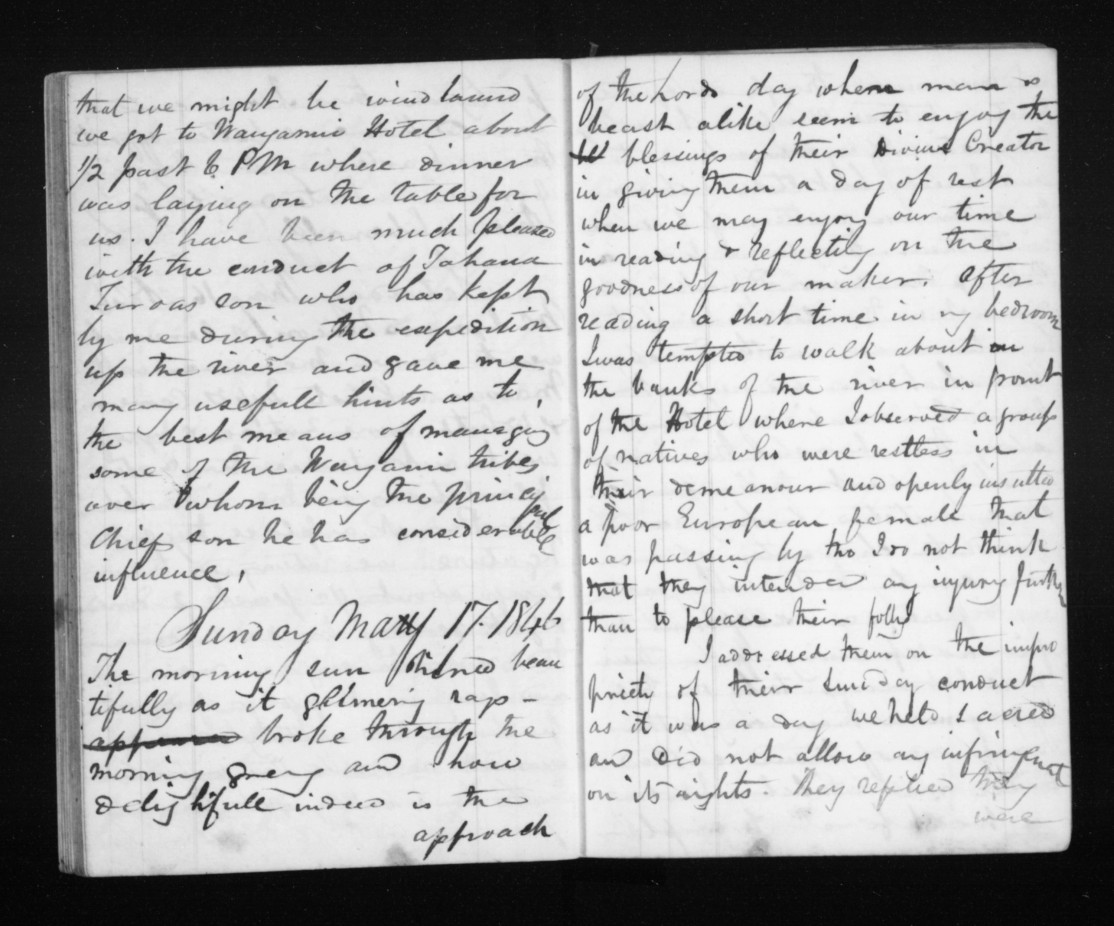 that we might be wind bound
we got to Wanganui Hotel about
1/2 past 6 PM where dinner
was laying on the table for
us. I have been much pleased
with the conduct of Tahana
Turoas son who has kept
by me during the expedition
up the river and gave me
many usefull hints as to
the best means of managing
some of the Wanganui tribes
over whom being the princi
pal
Chiefs son he has considerable
influence,
Sunday May 17. 1846
The morning sun shined beau
tifully as it glismering rays -
appeared broke through the
morning grey and how
delightfull indeed is the
approach
of the Lords day where man &
beast alike seem to enjoy the
blessings of their Divine Creator
in giving them a day of rest
when we may enjoy our time
in reading & reflectily on the
goodness of our maker. after
reading a short time in my bedroom
I was tempted to walk about on
the banks of the river in front
of the Hotel where I observed a group
of natives who were restless in
their demeanour and openly insulted
a poor European female that
was passing by tho I do not think
that they intended any injury further
than to please their folly
I addressed them on the impro
priety of their Sunday conduct
as it was a day we held sacred
and did not allow any infringment
on its rights. They replied they
were